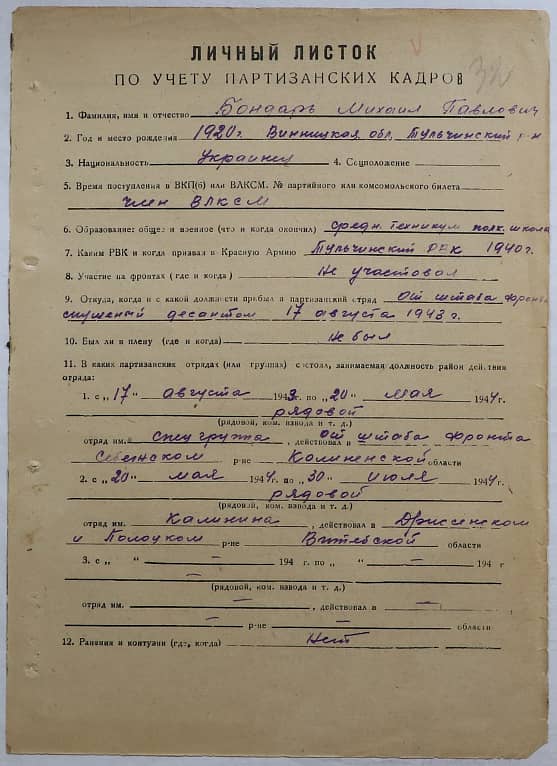 ЛИЧНЫЙ ЛИСТОК
ПО УЧЕТУ ПАРТИЗАНСКИХ КАДРОВ
1. Фамилия, имя и отчество Бондарь Михаил Павлович
2. Год и место рождения 1920 г. Винницкая обл. Тульчинский р-н
3. Национальность Украинец 4. Соцположение
5. Время поступления в ВКП(б) или ВЛКСМ. № партийного или комсомольского билета
член ВЛКСМ
6. Образование: общее и военное (что и когда окончил) средн. техникум полк. школа
7. Каким РВК и когда призван в Красную Армию Тульчинский РВК 1940 г.
8. Участие на фронтах (где и когда) Не участовал
9. Откуда, когда и с какой должности прибыл в партизанский отряд От штаба фронта
десантом 17 августа 1943 г.
10. Был ли в плену (где и когда) Не был
11. В каких партизанских отрядах (или группах) состоял, занимаемая должность район действия
отряда:
1. с „17“ августа 1943 г. по „20“ мая 1944 г.
рядовой
(рядовой, ком. взвода и т. д.)
отряд им. спецгруппа, действовал в от штаба фронта
р-не Калиненской области
2. с „20“ мая 1944 г. по „30“ июля 1944 г.
рядовой
(рядовой, ком. взвода и т. д.)
отряд им. Калинина, действовал в Дриссенском
и Полоцком р-не Витебской области
3. с „ “ — 194 г. по „ “ — 194 г
—
(рядовой, ком. взвода и т. д.)
отряд им. —, действовал в —
— р-не — области
12. Ранения и контузии (где, когда) Нет